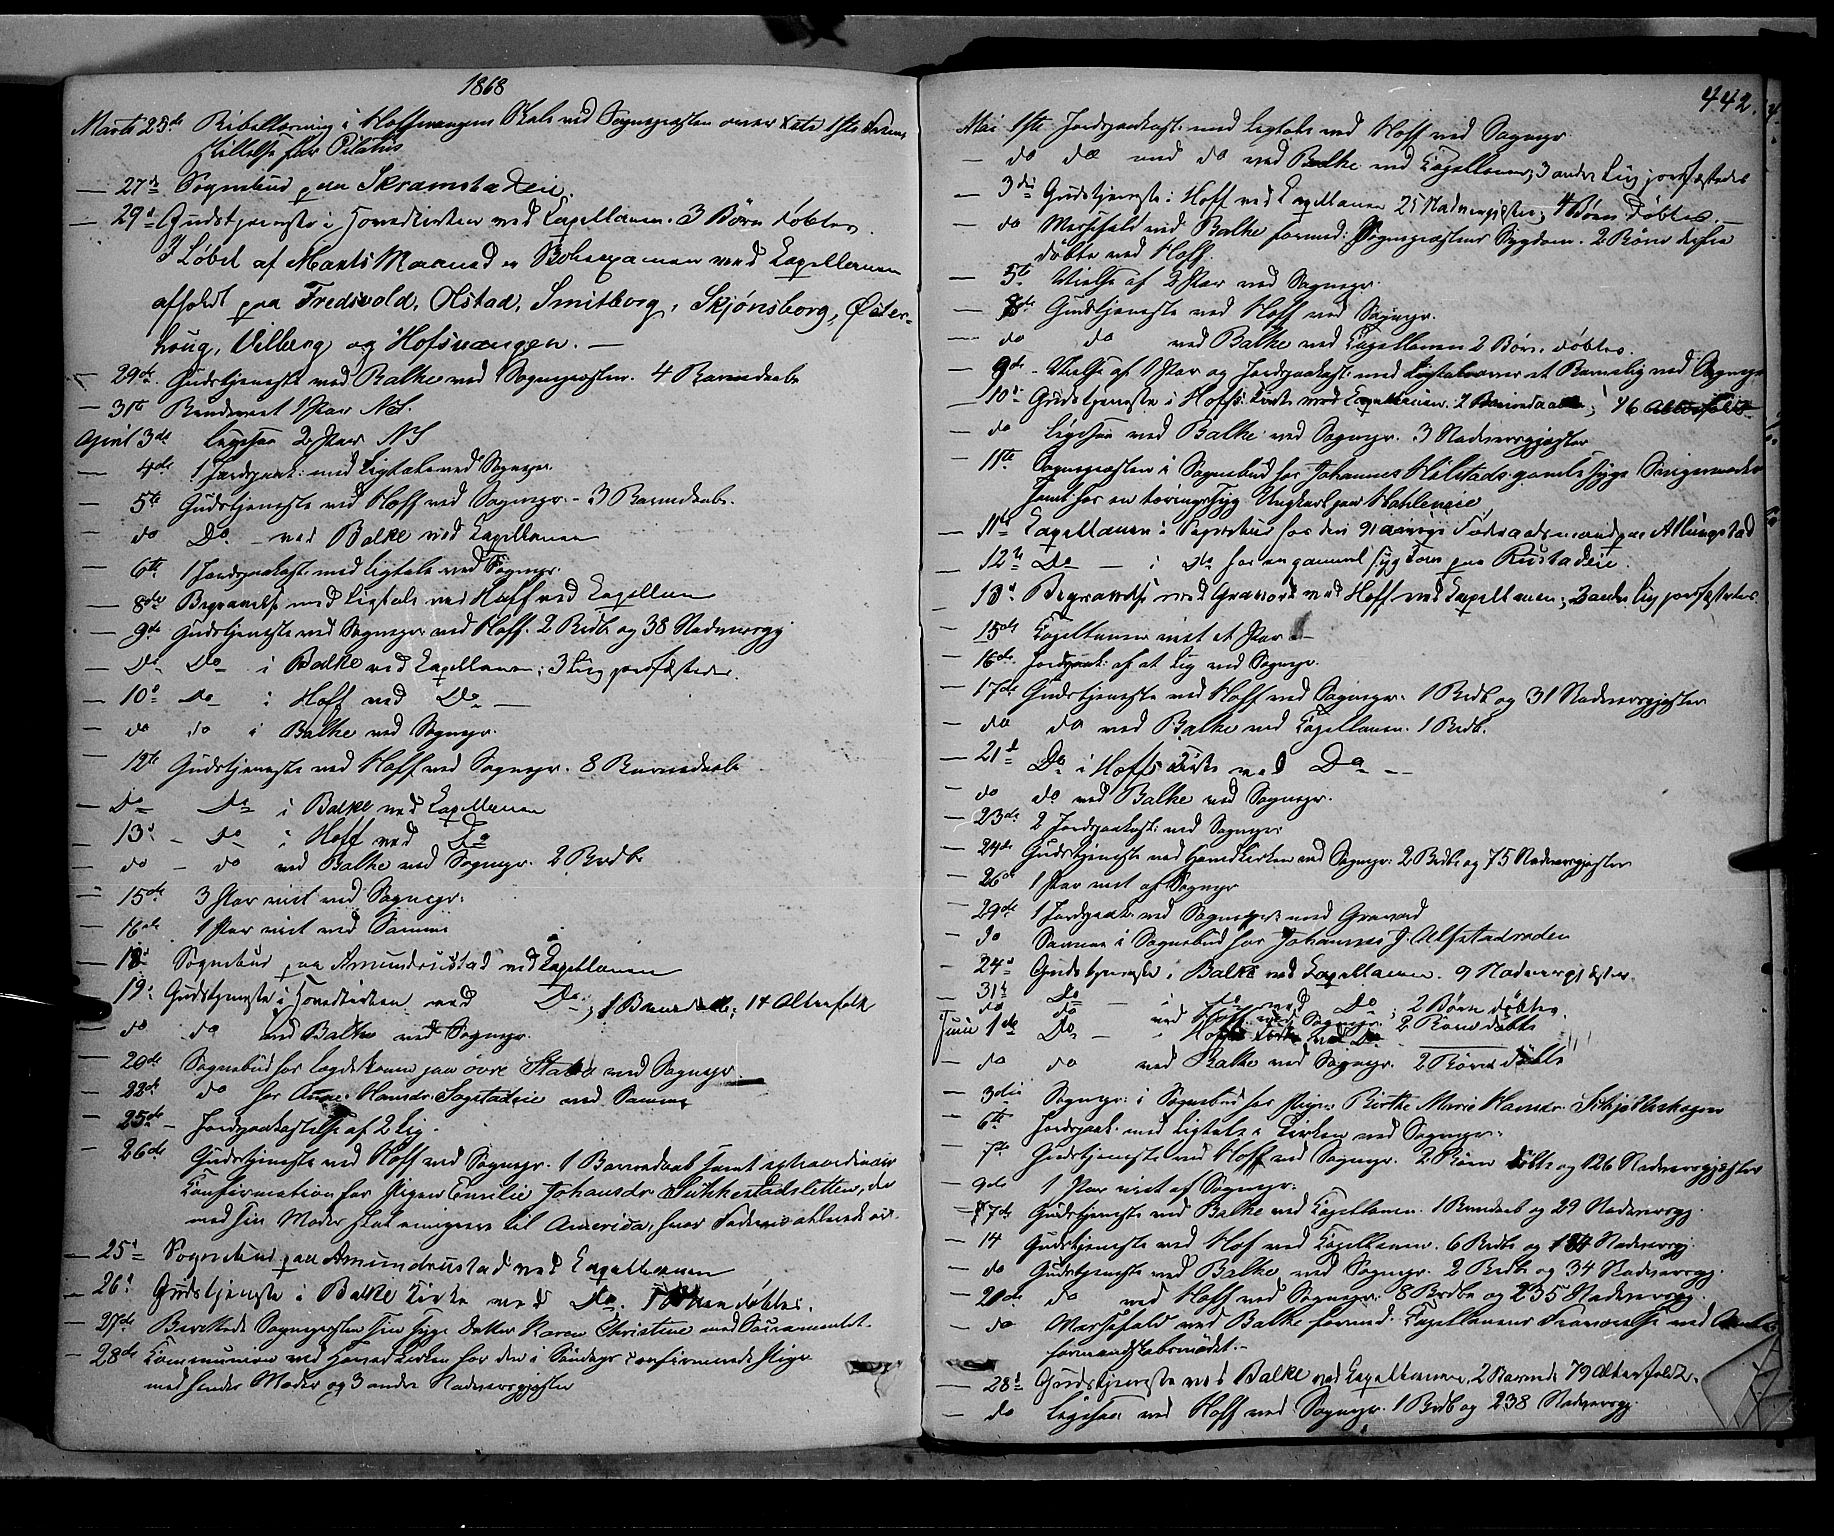 1868
Marts 25de Bibellæsning i Hoffsvangens Skole ved Sognepræsten over Xsti 1ste Frem-
stillelse for Pilatus
— 27de Sognebud paa Skramstadeie.
— 29de Gudstjeneste i Hovedkirken ved Capellanen. 3 Børn døbtes.
I Løbet af Marts Maaned er Bibelexamen ved Capellanen
afholdt paa Fredsvold, Olstad, Smitborg, Skjønsborg, Øster-
houg, Vilberg og Hofsvangen. —
— 29de. Gudstjeneste ved Balke ved Sognepræsten. 4 Barnedaab
— 31te Brudeviet 1 Par NS.
April 3de ligesaa 2 Par NS
— 4de 1 Jordpaak: med Ligtale ved Sognepr.
— 5te Gudstjeneste ved Hoff ved Sognepr. – 3 Barnedaab.
— do Do – ved Balke ved Capellanen
— 6te 1 Jordpaakast: med Ligtale ved Sognepr.
— 8de Begravelse med Ligtale ved Hoff ved Capellan
— 9de Gudstjeneste ved Sognepr. ved Hoff. 2 Brdb og 38 Nadversgj
— Do Do i Balke ved Capellanen; 3 Lig jordfæstede.
— 10de Do i Hoff ved Do —
— do do i Balke ved Sognepr.
— 12te Gudstjeneste ved Hoff ved Sognepr. 8 Barnedaab
— Do Do i Balke ved Capellanen
— 13de – Do i Hoff ved Do
— do – do ved Balke ved Sognepr. 2 Brdb
— 15de 3 Par viet ved Sognepr:
— 16de 1 Par viet ved Samme
— 18de Sognebud paa Amundrustad ved Capellanen
— 19de Gudstjeneste i Hovedkirken ved Do; 1 Barnedaab; 14 Altersfolk
— do do ved Balke ved Sognepr.
— 20de Sognebud for Lægdskone paa øvre Stabo ved Sognepr.
— 22de do for Anne Hansdr. Sogstadeie ved Samme
— 25de – Jordpaakastelse af 2 Lig.
— 26de Gudstjeneste ved Hoff ved Sognepr. 1 Barnedaab samt extraordinair
Confirmation for Pigen Emilie Johansdr. Sukkestadsletten, der
med sin Moder skal emigrere til America, hvor Faderen allerede er.
— 25de Sognebud paa Amundrustad ved Capellanen
— 26de Gudstjeneste i Balke Kirke med Do. døbtes.
— 27de Berettede Sognepræsten sin syge Datter Karen Christine med Sacramentet.
— 28de Communion ved Hovedkirken for den i Søndags confirmerede Pige
med hendes Moder og 3 andre Nadversgjæster
442.
Mai 1ste Jordpaakast: med Ligtale ved Hoff ved Sognepr.
— do do med do ved Balke ved Capellanen; 3 andre Lig jordfæstedes
— 3die Gudstjeneste i Hoff ved Capellanen 25 Nadvergjæster; 4 Børn døbtes. —
— do Messefald ved Balke formed: Sognepræstens Sygdom. 2 Børn derfra
døbte ved Hoff.
— 5te Vielse af 2 Par ved Sognepr.
— 8de Gudstjeneste ved Hoff ved Sognepr.
— do do ved Balke ved Capellanen 2 Børn døbtes.
— 9de – Vielse af 1 Par og Jordpaakast: med Ligtale over et Barnelig ved Sognepr
— 10de Gudstjeneste i Hoffs Kirke ved Capellanen. 2 Barnedaab; 46 Altersfolk
— do ligesaa ved Balke ved Sognepr. 3 Nadversgjæster
— 11te Sognepræsten i Sognebud for Johannes Hilstads gamle syge Svigermoder
samt for en tæringssyg Ungkarl paa Hahleneie
— 11te Capellanen i Sognebud for den 91 aarige Føderaadsmand paa Allungstad
— 12te Do — i Do for en gammel syg Kone paa Rustadeie.
— 13de Begravelse med Gravord ved Hoff ved Capellanen; 3 andre Lig jordfæstedes.
— 15de Capellanen viet et Par –
— 16de Jordpaak: af et Lig ved Sognepr.
— 17de Gudstjeneste ved Hoff ved Sognepr. 1 Brdb og 31 Nadversgjæster
— do do ved Balke ved Capellanen. 1 Brdb.
— 21de Do i Hoffs Kirke ved Do —
— do do ved Balke ved Sognepr.
— 23de 2 Jordpaakast: ved Sognepr:
— 24de Gudstjeneste ved Hovedkirken ved Sognepr: 2 Brdb og 75 Nadversgjæster
— 26de 1 Par viet af Sognepr
— 29de 1 Jordpaak: ved Sognepr: med Gravord
— do Samme i Sognebud for Johannes J. Alfstadreden
— 24de Gudstjeneste i Balke ved Capellanen. 9 Nadvergjæster.
— 31te Do — i do ved Do; 2 Børn døbtes.
do do ved Hoff ved Sognepr. 2 Børn døbte
Juni 1ste Do — i Hoffs Kirke ved Do
— do do ved Balke ved Sognepr. 2 Børn døbte
— 3die Sognepr: i Sognebud for Pigen Birthe Marie Hansdr.
— 6te Jordpaak: med Ligtale i Kirken ved Sognepr:
— 7de Gudstjeneste ved Hoff ved Sognepr. 2 Børn døbte og 126 Nadversgjæster
— 9de 1 Par viet af Sognepr:
— 7de Gudstjeneste ved Balke ved Capellanen. 1 Barnedaab og 29 Nadversgj.
— 14 Gudstjeneste ved Hof ved Capellanen. 6 Brdb og 184 Nadversgj
— do Gudstjeneste ved Balke ved Sognepr. 2 Brdb og 34 Nadversgj.
— 20de do ved Hoff ved Sognepr. 8 Brdb og 235 Nadversgj.
— do Messefald ved Balke formed. Capellanens Fraværelse ved
formandskabsmødet. –
— 28de Gudstjeneste ved Balke ved Capellanen, 2 Barned. 79 Altersfolk.
— do ligesaa ved Hoff ved Sognepr. 1 Brdb og 238 Nadversgj.